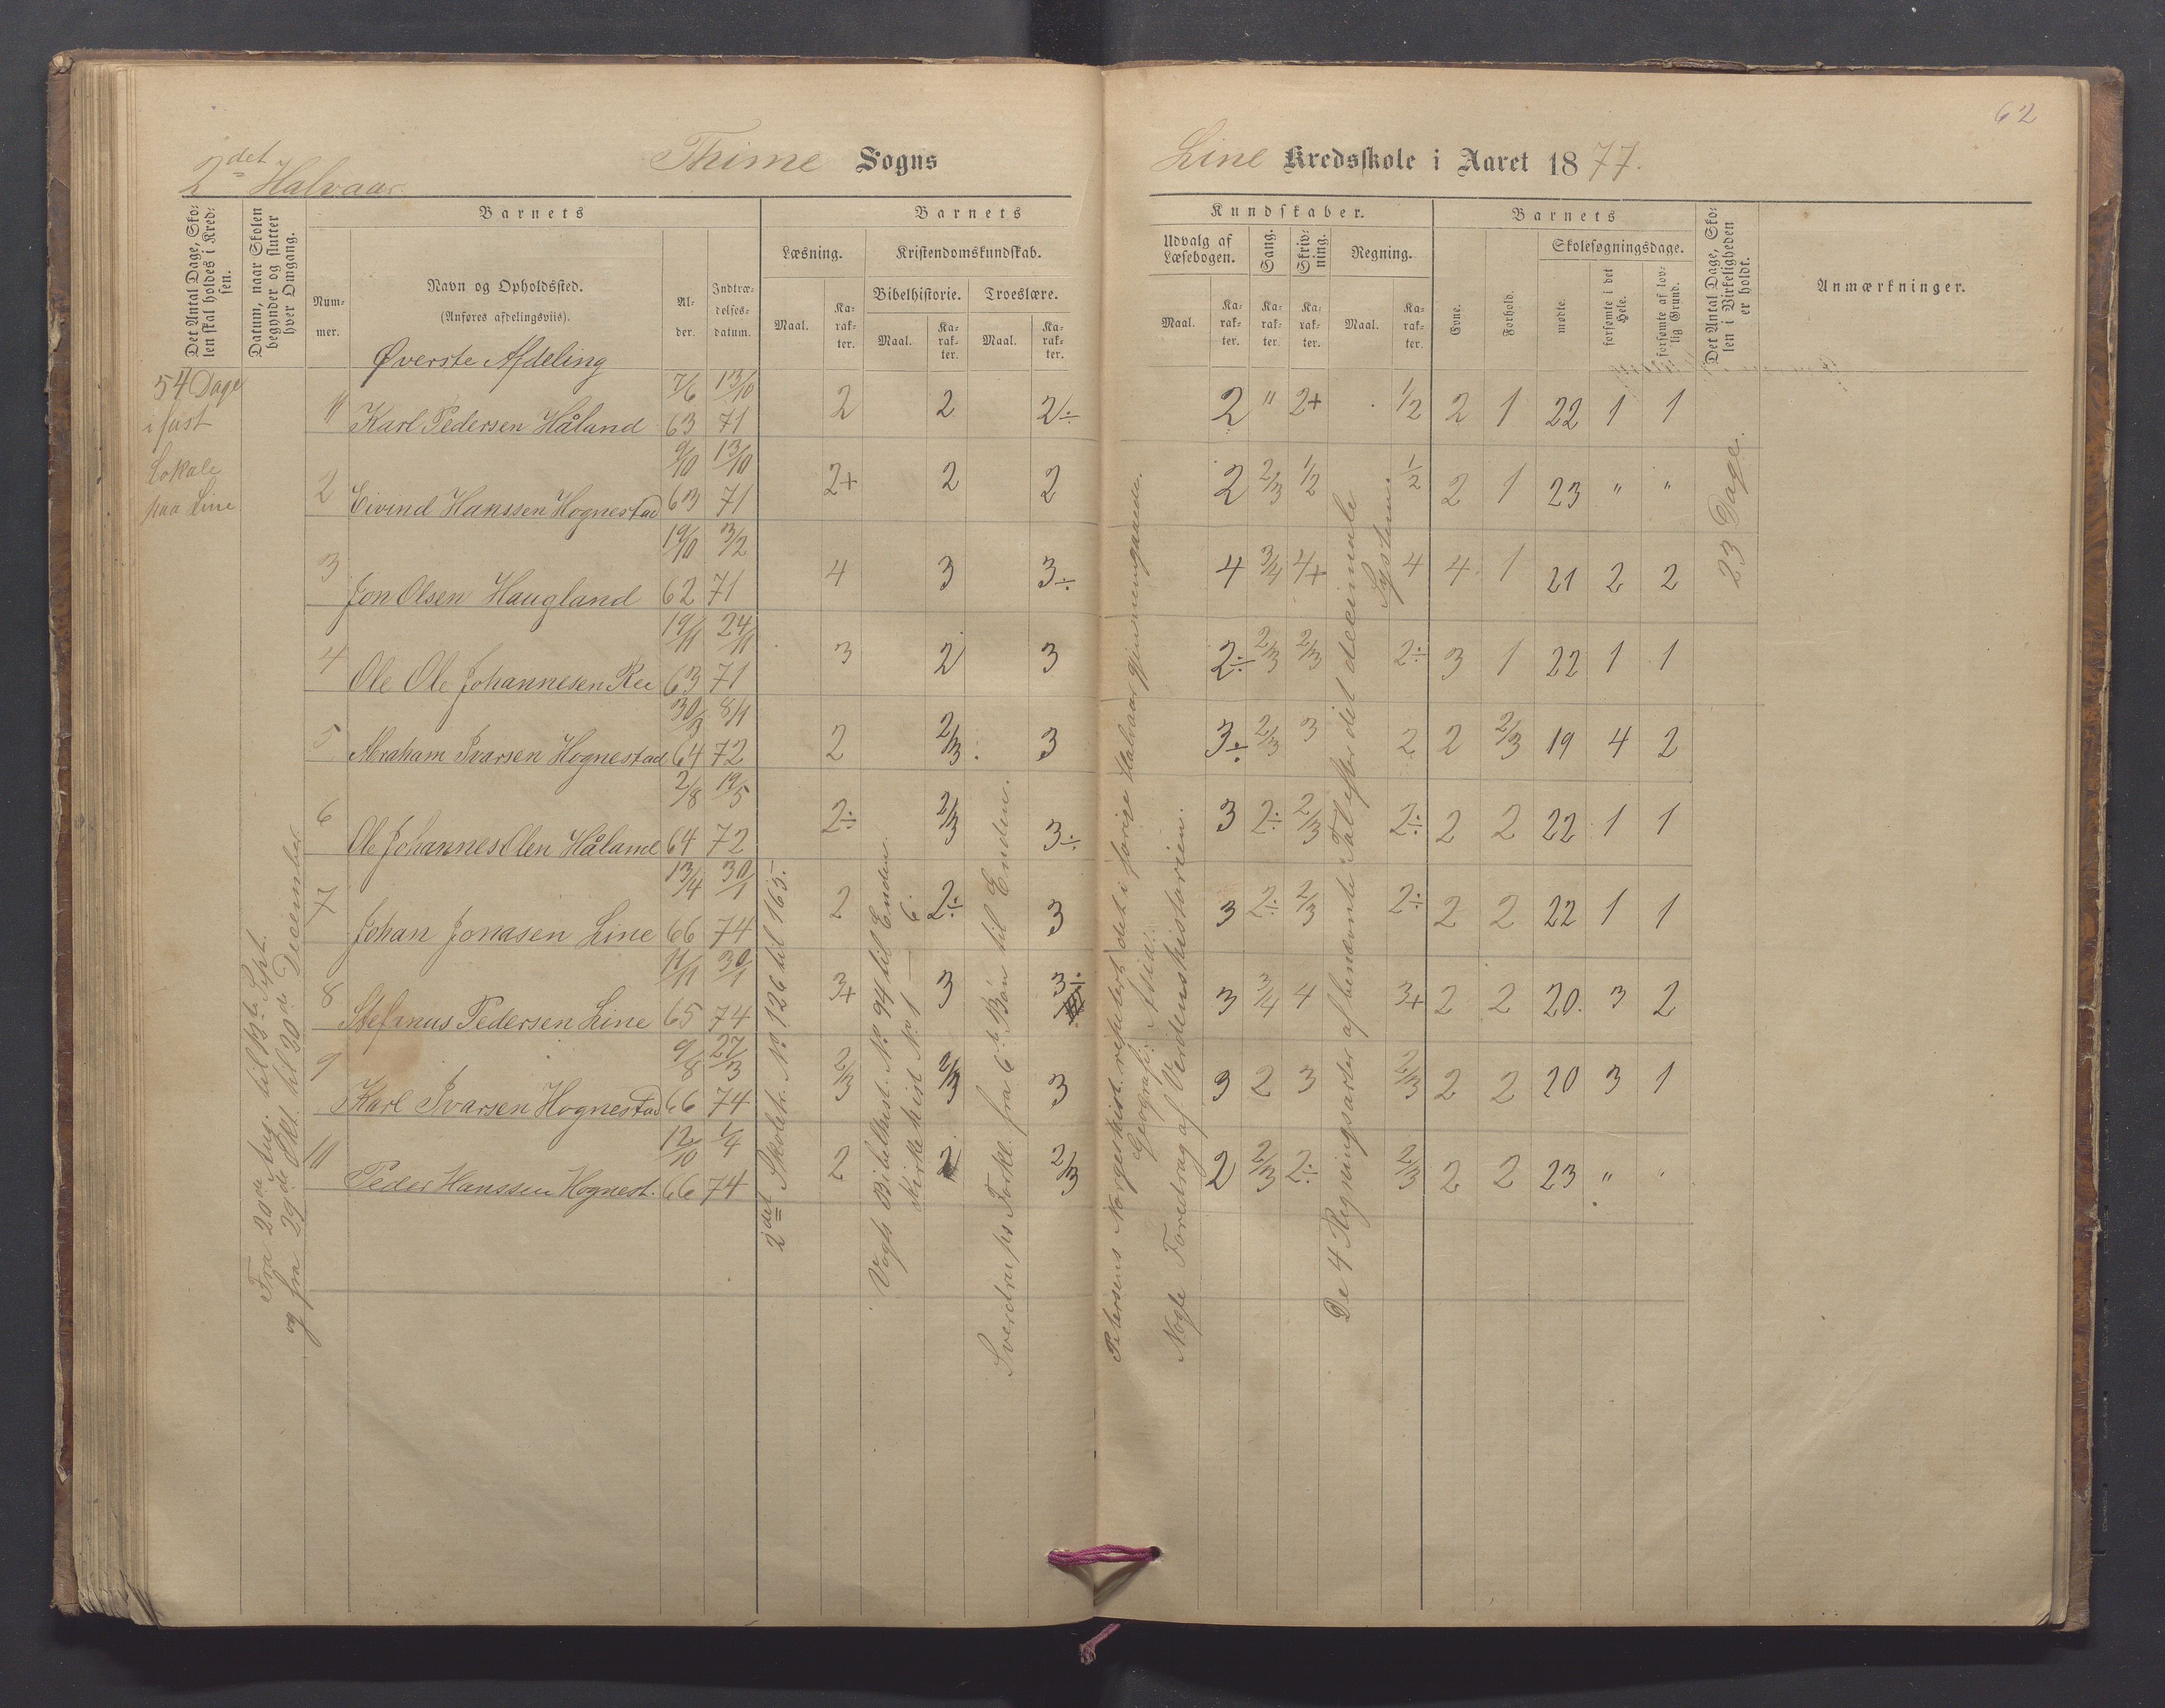 62
2det Halvaar.
Thime Sogns
Line Kredsskole i Aaret 1877.
Det Antal Dage, Sko-
len skal holdes i Kred-
sen.
Datum, naar Skolen
begynder og slutter
hver Omgang.
Barnets
Num-
mer.
Navn og Opholdssted.
(Anføres afdelingsviis).
Al-
der.
Indtræ-
delses-
datum.
Barnets
Læsning.
Maal.
Ka-
rak-
ter.
Kristendomskundskab.
Bibelhistorie.
Maal.
Ka-
rak-
ter.
Troeslære.
Maal.
Ka-
rak-
ter.
Kundskaber.
Udvalg af
Læsebogen.
Maal.
Ka-
rak-
ter.
Sang.
Ka-
rak-
ter.
Skriv-
ning.
Ka-
rak-
ter.
Regning.
Maal.
Ka-
rak-
ter.
Barnets
Evne.
Forhold.
Skolesøgningsdage.
mødte.
forsømte i det
Hele.
forsømte af lov-
lig Grund.
Det Antal Dage, Sko-
len i Virkeligheden
er holdt.
Anmærkninger.
Øverste Afdeling
54 Dage
i fast
Lokale
paa Line
Fra 20de Aug. til 13de Sept.
og fra 29de Okt. til 20de December
1 Karl Pedersen Håland 7/6 63 13/10 71 2 2 2÷ 2 " 2+ 1/2 2 1 22 1 1
2 Eivind Hanssen Hognestad 9/10 63 13/10 71 2+ 2 2 2 2/3 1/2 1/2 2 1 23 " "
3 Jon Olsen Haugland 19/10 62 3/2 71 4 3 3÷ 4 3/4 4+ 4 4 1 21 2 2
4 Ole Ole Johannesen Ree 19/11 63 24/11 71 3 2 3 2÷ 2/3 2/3 2÷ 3 1 22 1 1
5 Abraham Ivarsen Hognestad 30/3 64 8/1 72 2 2/3 3 3÷ 2/3 3 2 2 2/3 19 4 2
6 Ole Johannes Olen Håland 2/8 64 19/5 72 2÷ 2/3 3÷ 3 2÷ 2/3 2÷ 2 2 22 1 1
7 Johan Jonasen Line 13/4 66 30/1 74 2 2÷ 3 3 2÷ 2/3 2÷ 2 2 22 1 1
8 Stefanus Pedersen Line 11/11 65 30/1 74 3+ 3 3÷ 3 3/4 4 3+ 2 2 20 3 2
9 Karl Ivarsen Hognestad 9/8 66 27/3 74 2/3 2/3 3 3 2 3 2/3 2 2 20 3 1
10 Peder Hanssen Hognest. 12/10 66 1/4 74 2 2 2/3 2 2/3 2÷ 2/3 2 2 23 " "
2det Skoletr. No 126 til 163.
Vogts Bibelhist. No 94 til Enden.
Kirkehist No 1 — 6.
Sverdrups Forkl. fra 6te Bøn til Enden.
Petersens Norgeshist. repetert det i forige Halvaar gjennemgaaede.
Geografi: Asia.
Nogle Foredrag af Verdenshistorien.
De 4 Regningsarter af benævnte Tal efter det decimale
System.
23 Dage.